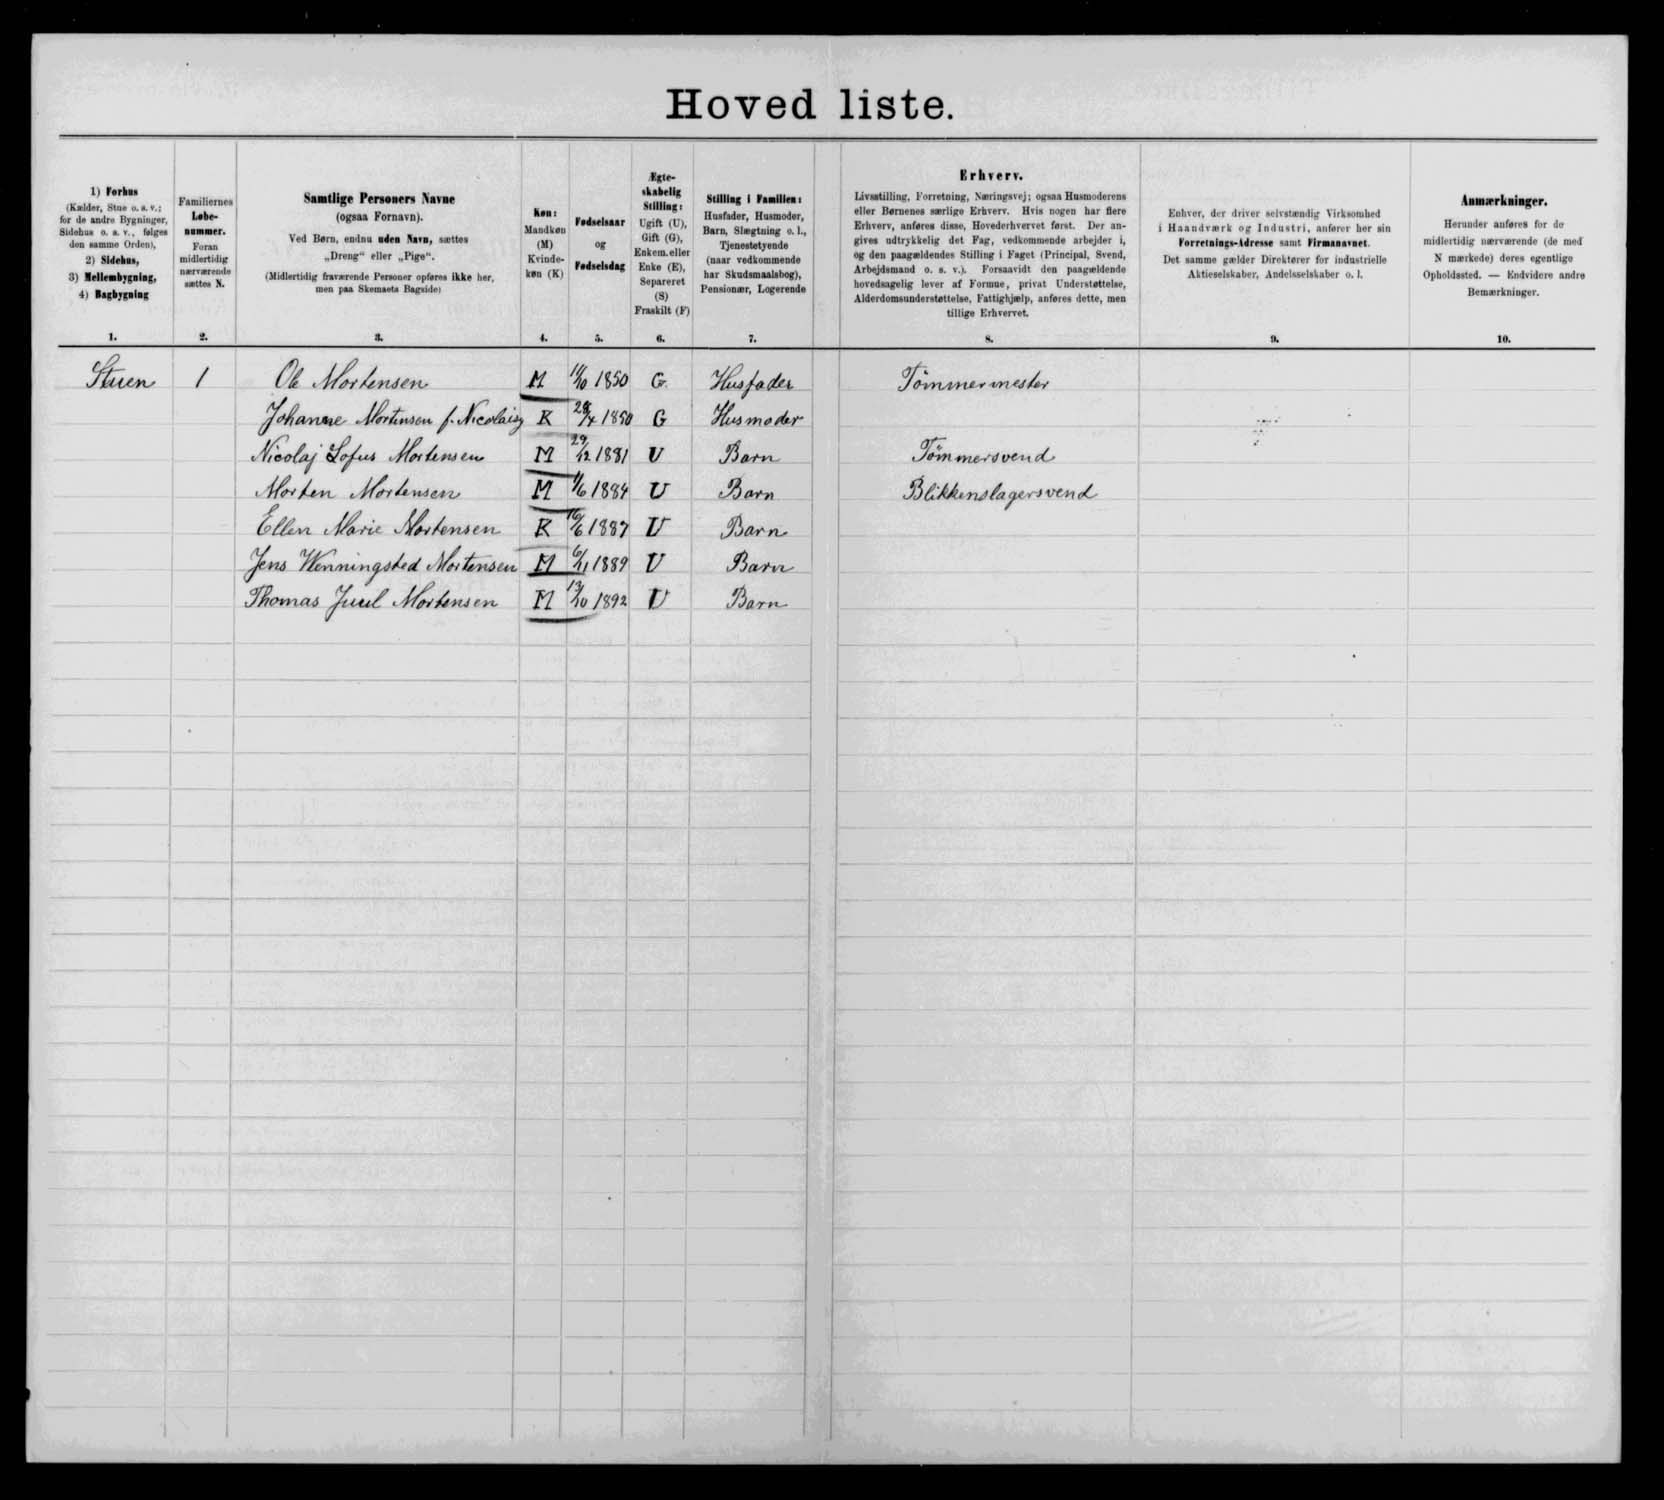 Hoved liste.
1) Forhus
(Kælder, Stue o. s. v.;
for de andre Bygninger,
Sidehus o. s. v., følges
den samme Orden),
2) Sidehus,
3) Mellembygning,
4) Bagbygning
1.
Familiernes
Løbe-
nummer.
Foran
midlertidig
nærværende
sættes N.
2.
Samtlige Personers Navne
(ogsaa Fornavn).
Ved Børn, endnu uden Navn, sættes
„Dreng“ eller „Pige“.
(Midlertidig fraværende Personer opføres ikke her,
men paa Skemaets Bagside)
3.
Køn:
Mandkøn
(M)
Kvinde-
køn (K)
4.
Fødselsaar
og
Fødselsdag
5.
Ægte-
skabelig
Stilling:
Ugift (U),
Gift (G),
Enkem. eller
Enke (E),
Separeret
(S)
Fraskilt (F)
6.
Stilling i Familien:
Husfader, Husmoder,
Barn, Slægtning o. l.,
Tjenestetyende
(naar vedkommende
har Skudsmaalsbog),
Pensionær, Logerende
7.
Erhverv.
Livsstilling, Forretning, Næringsvej; ogsaa Husmoderens
eller Børnenes særlige Erhverv. Hvis nogen har flere
Erhverv, anføres disse, Hovederhvervet først. Der an-
gives udtrykkelig det Fag, vedkommende arbejder i,
og den paagældendes Stilling i Faget (Principal, Svend,
Arbejdsmand o. s. v.). Forsaavidt den paagældende
hovedsagelig lever af Formue, privat Understøttelse,
Alderdomsunderstøttelse, Fattighjælp, anføres dette, men
tillige Erhvervet.
8.
Enhver, der driver selvstændig Virksomhed
i Haandværk og Industri, anfører her sin
Forretnings-Adresse samt Firmanavnet.
Det samme gælder Direktører for industrielle
Aktieselskaber, Andelsselskaber o. l.
9.
Anmærkninger.
Herunder anføres for de
midlertidig nærværende (de med
N mærkede) deres egentlige
Opholdssted. — Endvidere andre
Bemærkninger.
10.
Stuen 1 Ole Mortensen M 1850 G Husfader Tömmermester
Johanne Mortensen f. Nicolaisen K 28/4 1850 G Husmoder
Nicolaj Sofus Mortensen M 29/12 1881 U Barn Tömmersvend
Morten Mortensen M 1884 U Barn Blikkenslagersvend
Ellen Marie Mortensen K 16/6 1887 U Barn
Jens Wenningsted Mortensen M 6/11 1889 U Barn
Thomas Juul Mortensen M 13/10 1892 U Barn